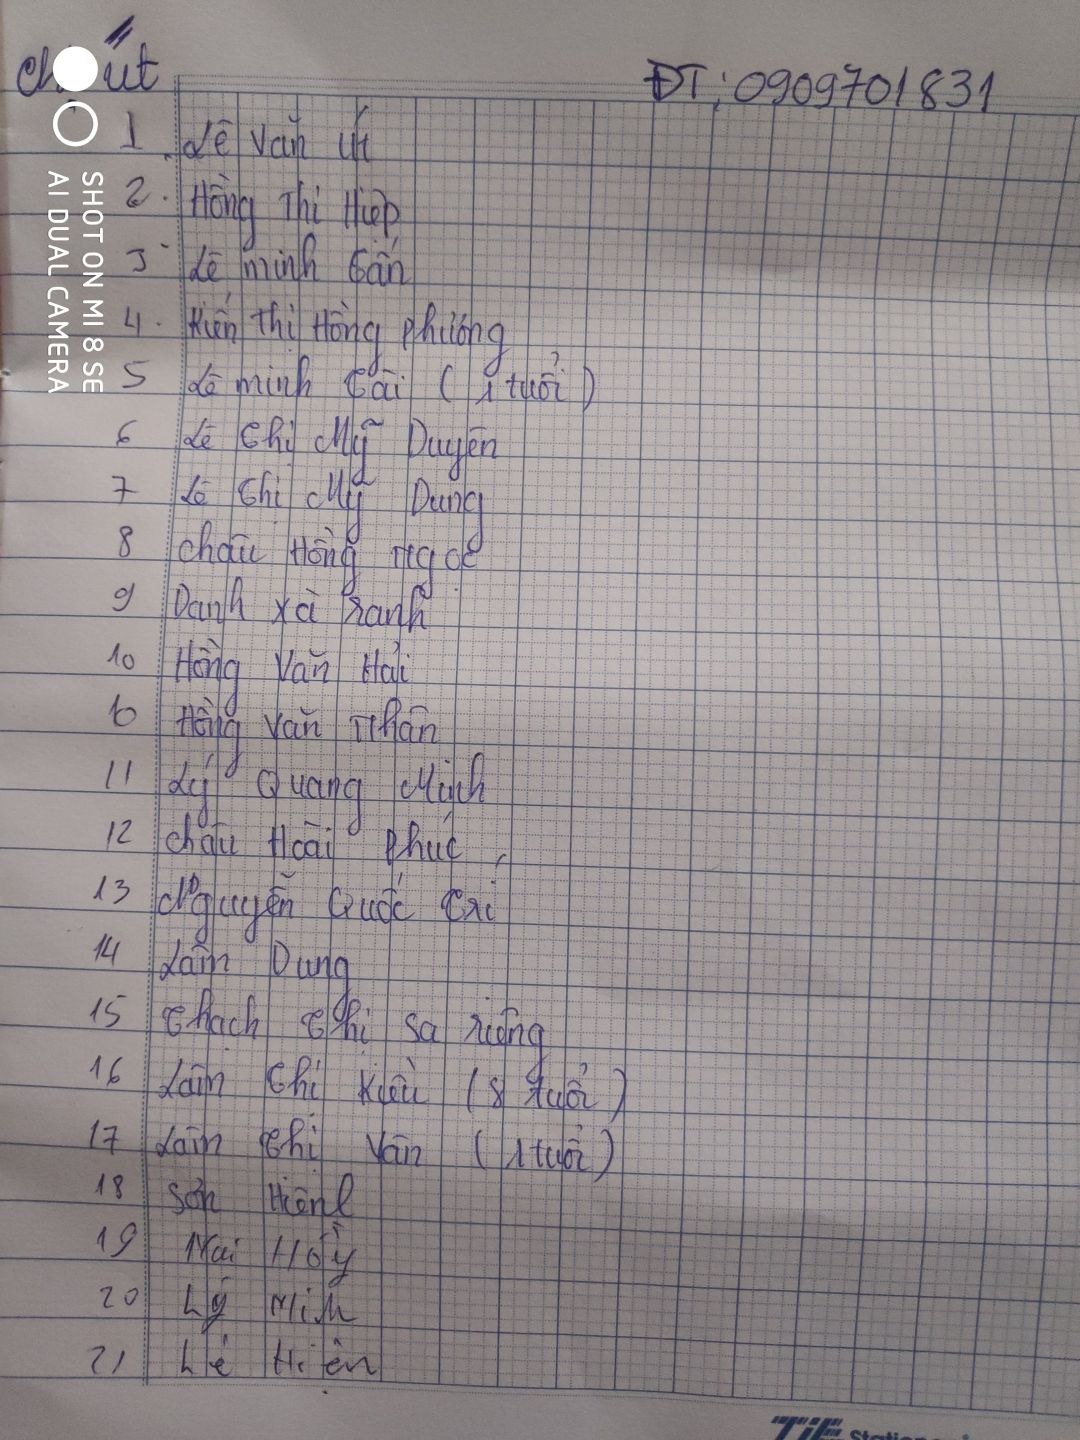 út ĐT: 0909701831
1 Lê Văn Út
2. Hồng Thị Hiệp
3 Lê minh Gấn
4. Kiến Thị Hồng Phương
5 Lê minh Tài (1 tuổi)
6 Lê Thị Mỹ Duyên
7 Lê Thị Mỹ Dung
8 Châu Hồng Ngọc
9 Danh xà ranh
10 Hồng Văn Hải
10 Hồng Văn Nhân
11 Lý Quang Minh
12 Châu Hoài Phúc
13 Nguyễn Quốc Trí
14 Lâm Dung
15 Thạch Thị Sa riêng
16 Lâm Thị Kiều (8 tuổi)
17 Lâm Thị Vân (1 tuổi)
18 Sơn
19 Mai Hồ
20 Lý Minh
21 Lê Hiền
SHOT ON MI 8 SE
AI DUAL CAMERA